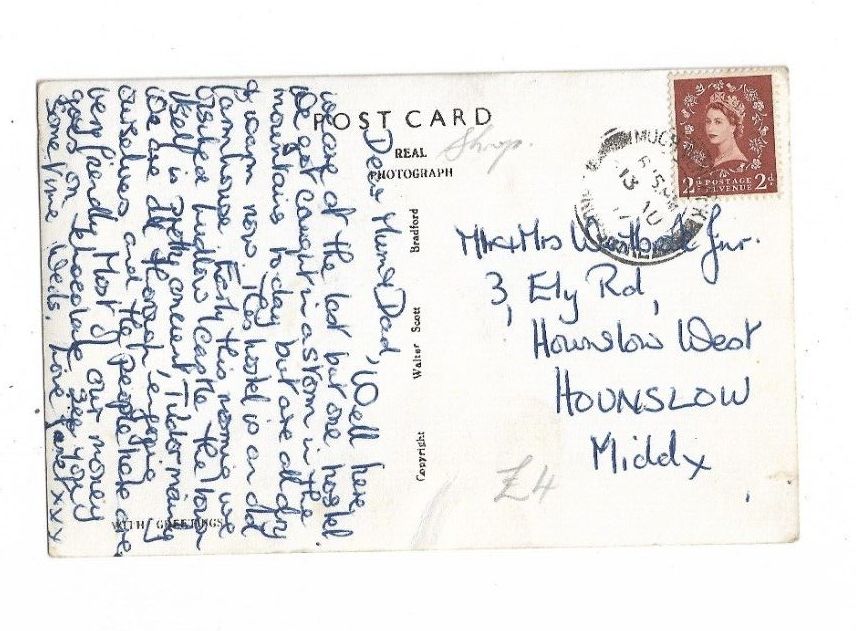 POST CARD
REAL
PHOTOGRAPH
Shrop.
Copyright Walter Scott Bradford
WITH GREETINGS
Dear Mum & Dad, Well here
we are at the last but one hostel
We got caught in a storm in the
mountains to day but are all dry
& warm now. This hostel is an old
farmhouse. Early this morning we
visited Ludlow Castle the town
itself is pretty ancient, Tudor mainly
We are all thorough enjoying
ourselves and the people here are
very friendly. Most of our money
goes on chocolate. See you
some time Weds, love Janet xxx
Mr & Mrs Jnr.
3, Ely Rd,
Hounslow West
HOUNSLOW
Middx
£4
MUCH
13
2D POSTAGE 2D
REVENUE